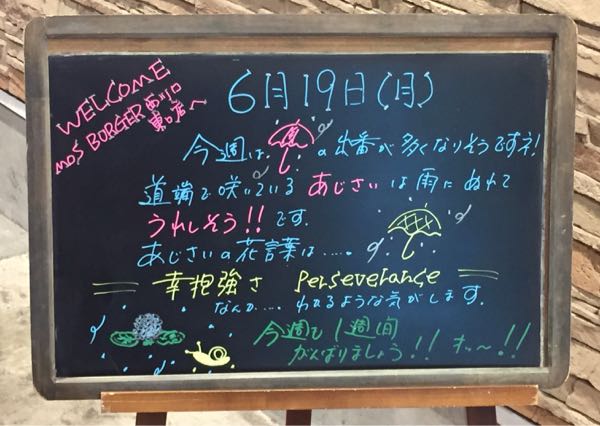 WELCOME
MOS BORGER 西川口
東口店へ
6月19日(月)
今週は、 の出番が多くなりそうですネ!
道端で咲いている あじさいは雨にぬれて
うれしそう!! です.
あじさいの花言葉は.....。
幸抱強さ Perseverance
なんか.... わかるような気がします.
今週も1週間
がんばりましょう!! オッ〜!!